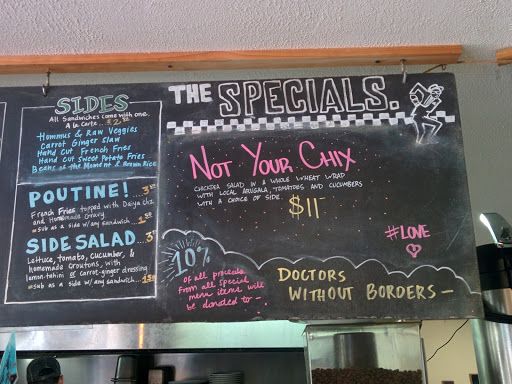 SIDES
All Sandwiches come with one.
A la Carte...
Hommus & Raw Veggies
Carrot Ginger Slaw
Hand Cut French Fries
Hand Cut Sweet Potato Fries
Beans of the Moment & Brown Rice
POUTINE!
French Fries topped with Daiya
and Homemade Gravy
*sub as a side w/ any sandwich...
SIDE SALAD...
Lettuce, tomato, cucumber, &
homemade croutons, with
lemon-tahini or carrot-ginger dressing
*sub as a side w/ any sandwich...
THE SPECIALS.
NOT YOUR CHIX
CHICKPEA SALAD IN A WHOLE WHEAT WRAP
WITH LOCAL ARUGALA, TOMATOES AND CUCUMBERS
WITH A CHOICE OF SIDE.
$11
#LOVE
10%
of all proceeds
from all special
menu items will
be donated to -
DOCTORS
WITHOUT BORDERS -